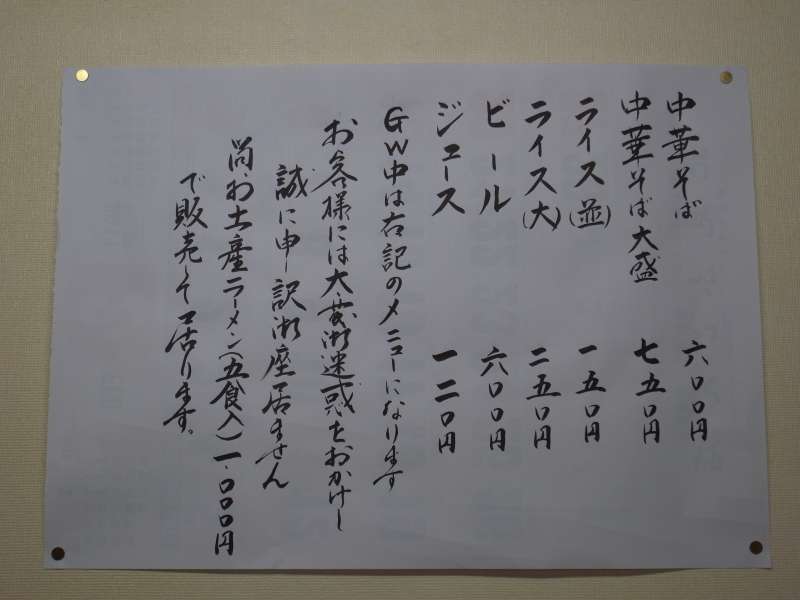 中華そば 六〇〇円
中華そば大盛 七五〇円
ライス(並) 一五〇円
ライス(大) 二五〇円
ビール 六〇〇円
ジュース 一二〇円
GW中は右記のメニューになります
お客様には大変御迷惑をおかけし
誠に申し訳御座居ません
尚、お土産ラーメン(五食入)一、〇〇〇円
で販売して居ります。